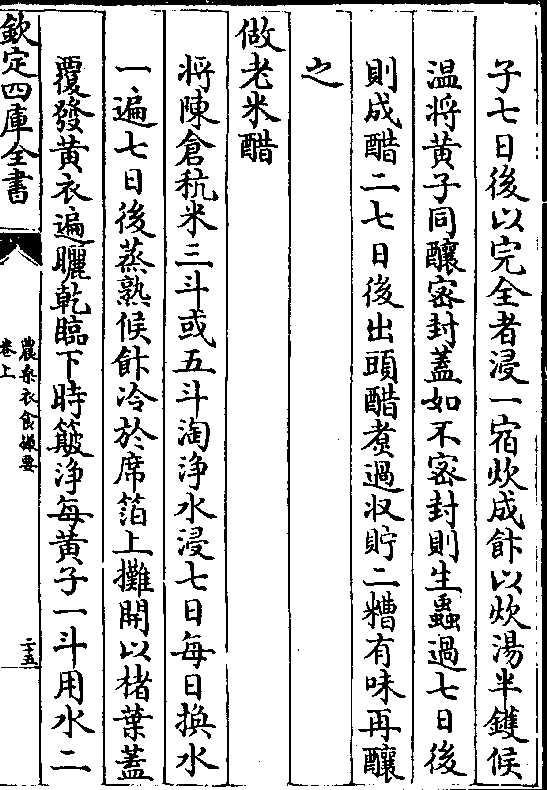 子七日後以完全者浸一宿炊成飰以炊湯半鑊候
温將黄子同釀密封蓋如不密封則生蟲過七日後
則成醋二七日後出頭醋煮過収貯二糟有味再釀
之
做老米醋
將陳倉秔米三斗或五斗淘浄水浸七日每日換水
一遍七日後蒸熟候飰冷於席箔上攤開以楮葉蓋
覆發黄衣遍曬乾臨下時簸浄每黄子一斗用水二
欽定四庫全書
農桑衣食撮要
卷上
二五